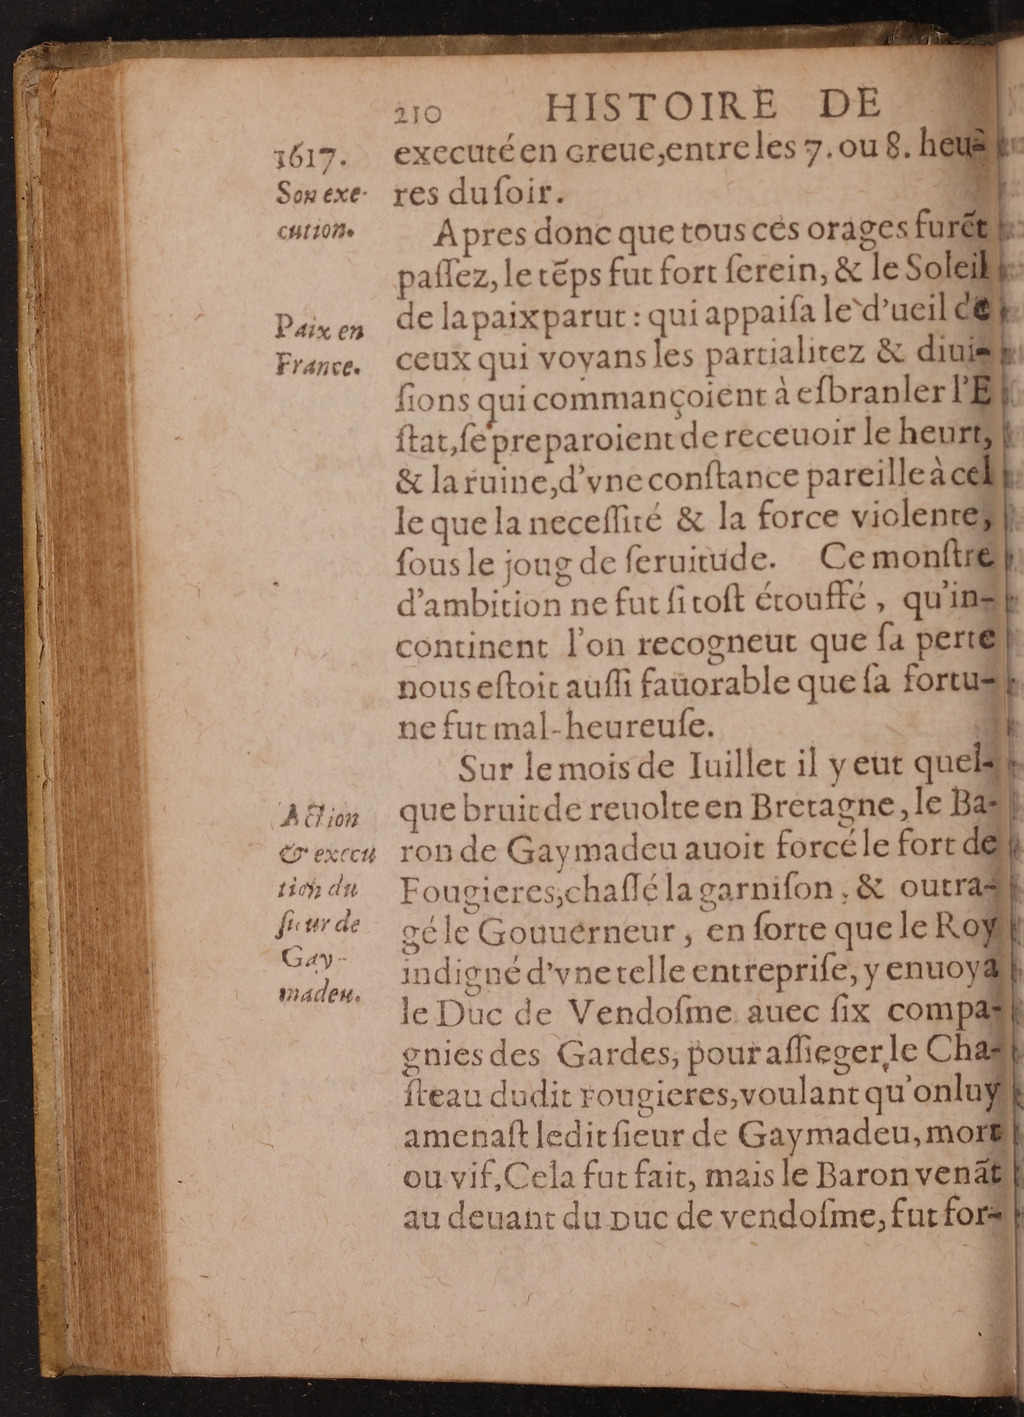 210 HISTOIRE DE
1617.
Son exe-
cution.
executé en Greue, entre les 7. ou 8. heu-
res du ſoir.
Apres donc que tous ces orages furẽt
paſſez, le tẽps fut fort ſerein, & le Soleil
Paix en
France.
de la paix parut : qui appaiſa le d'ueil de
ceux qui voyans les partialitez & diui-
ſions qui commançoient à eſbranler l'E
ſtat, ſe preparoient de receuoir le heurt,
& la ruine, d'vne conſtance pareille à cel
le que la neceſſité & la force violente,
ſous le joug de ſeruitude. Ce monſtre
d'ambition ne fut ſi toſt étouffé, qu'in-
continent l'on recogneut que ſa perte
nous eſtoit auſſi fauorable que ſa fortu-
ne fut mal-heureuſe.
Sur le mois de Iuillet il y eut quel-
Action
& execu
tion du
ſieur de
Gay-
madeu.
que bruit de reuolte en Bretagne, le Ba-
ron de Gaymadeu auoit forcé le fort de
Fougieres, chaſſé la garniſon, & outra-
gé le Gouuerneur, en ſorte que le Roy
indigné d'vne telle entrepriſe, y enuoya
le Duc de Vendoſme auec ſix compa-
gnies des Gardes, pour aſſieger le Cha-
ſteau dudit Fougieres, voulant qu'on luy
amenaſt ledit ſieur de Gaymadeu, mort
ou vif, Cela fut fait, mais le Baron venãt
au deuant du Duc de vendoſme, fut for-